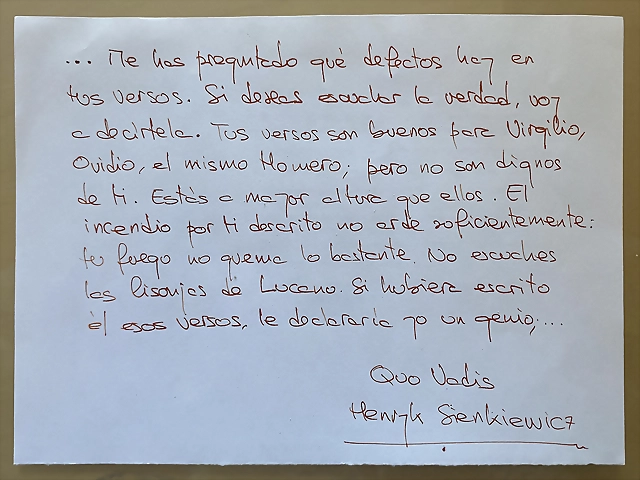 ... Me has preguntado qué defectos hay en
tus versos. Si deseas escuchar la verdad, voy
a decirtela. Tus versos son buenos para Virgilio,
Ovidio, el mismo Homero; pero no son dignos
de ti. Estás a mayor altura que ellos. El
incendio por ti descrito no arde suficientemente:
tu fuego no quema lo bastante. No escuches
las lisonjas de Lucano. Si hubiera escrito
él esos versos, le declararía yo un genio;...
Quo Vadis
Henryk Sienkiewicz